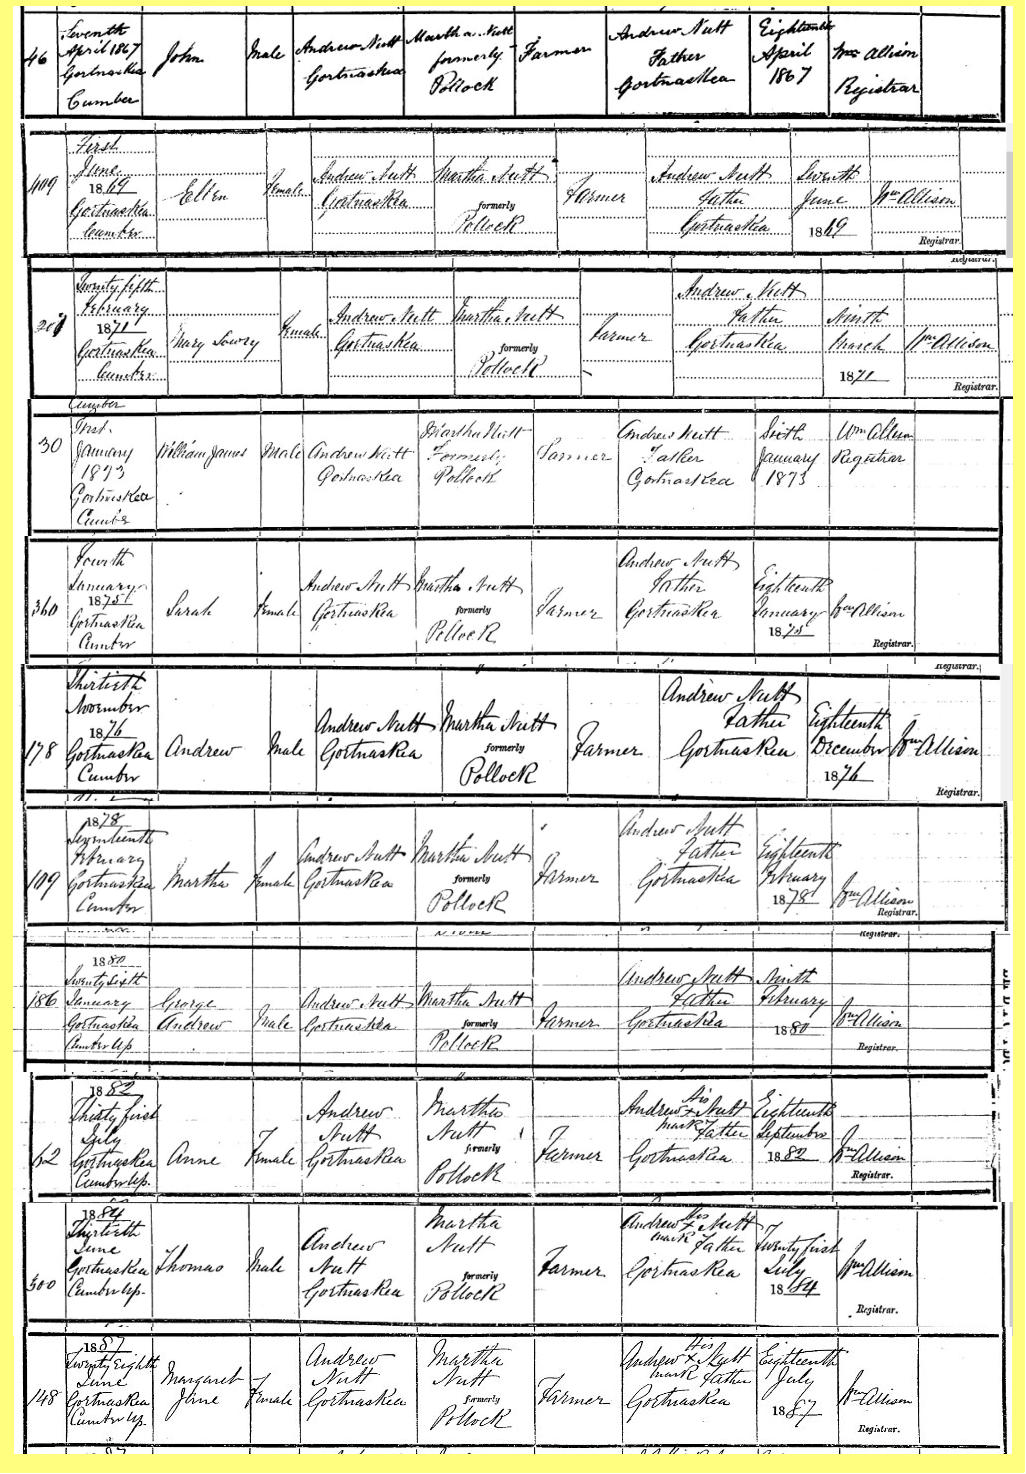 46
Seventh
April 1867
Gortnaskea
Cumber
John
Male
Andrew Nutt
Gortnaskea
Martha Nutt
formerly
Pollock
Farmer
Andrew Nutt
Father
Gortnaskea
Eighteenth
April
1867
Wm Allison
Registrar
409
First
June
1869
Gortnaskea
Cumber
Ellen
Female
Andrew Nutt
Gortnaskea
Martha Nutt
formerly
Pollock
Farmer
Andrew Nutt
father
Gortnaskea
Seventh
June
1869
Wm Allison
Registrar.
Registrar.
Twenty fifth
February
1871
Gortnaskea
Cumber
Mary Lowry
Female
Andrew Nutt
Gortnaskea
Martha Nutt
formerly
Pollock
Farmer
Andrew Nutt
Father
Gortnaskea
Ninth
March
1871
Wm Allison
Registrar.
Cumber
30
First
January
1873
Gortnaskea
Cumber
William James
Male
Andrew Nutt
Gortnaskea
Martha Nutt
Formerly
Pollock
Farmer
Andrew Nutt
Father
Gortnaskea
Sixth
January
1873
Wm Allison
Registrar
360
Fourth
January
1875
Gortnaskea
Cumber
Sarah
Female
Andrew Nutt
Gortnaskea
Martha Nutt
formerly
Pollock
Farmer
Andrew Nutt
Father
Gortnaskea
Eighteenth
January
1875
Wm Allison
Registrar.
Registrar.
178
Thirtieth
November
1876
Gortnaskea
Cumber
Andrew
Male
Andrew Nutt
Gortnaskea
Martha Nutt
formerly
Pollock
Farmer
Andrew Nutt
Father
Gortnaskea
Eighteenth
December
1876
Wm Allison
Registrar.
109
1878
Seventeenth
February
Gortnaskea
Cumber
Martha
Female
Andrew Nutt
Gortnaskea
Martha Nutt
formerly
Pollock
Farmer
Andrew Nutt
Father
Gortnaskea
Eighteenth
February
1878
Wm Allison
Registrar.
Registrar.
186
1880
Twenty Sixth
January
Gortnaskea
Cumber Up.
George
Andrew
Male
Andrew Nutt
Gortnaskea
Martha Nutt
formerly
Pollock
Farmer
Andrew Nutt
Father
Gortnaskea
Ninth
February
1880
Wm Allison
Registrar.
62
1882
Thirty first
July
Gortnaskea
Cumber Up.
Anne
Female
Andrew
Nutt
Gortnaskea
Martha
Nutt
formerly
Pollock
Farmer
his
Andrew x Nutt
mark Father
Gortnaskea
Eighteenth
September
1882
Wm Allison
Registrar.
300
1884
Thirtieth
June
Gortnaskea
Cumber Up.
Thomas
Male
Andrew
Nutt
Gortnaskea
Martha
Nutt
formerly
Pollock
Farmer
his
Andrew x Nutt
mark Father
Gortnaskea
Twenty first
July
1884
Wm Allison
Registrar.
148
1887
Twenty Eighth
June
Gortnaskea
Cumber Up.
Margaret
Jane
Female
Andrew
Nutt
Gortnaskea
Martha
Nutt
formerly
Pollock
Farmer
His
Andrew x Nutt
mark Father
Gortnaskea
Eighteenth
July
1887
Wm Allison
Registrar.